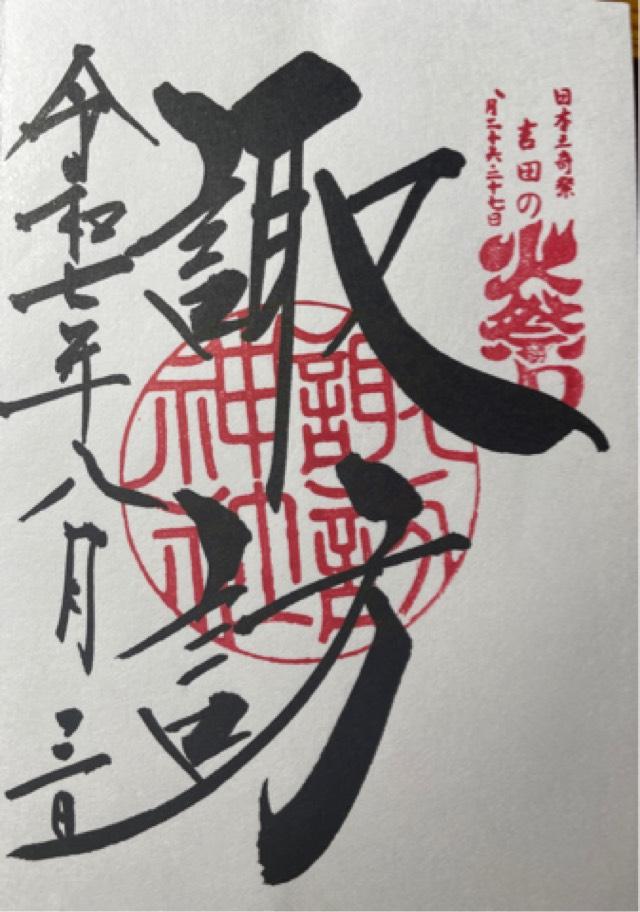 日本三奇祭
吉田の
火祭り
八月二十六・二十七日
諏訪
諏訪
神社
令和七年八月三日